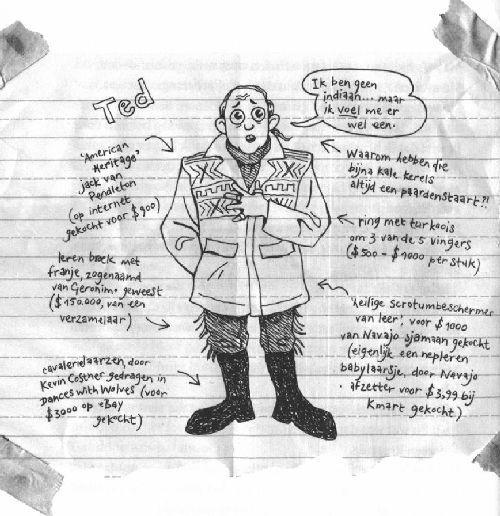 Ted
Ik ben geen
indiaan... maar
ik voel me er
wel een.
'American
Heritage'
jack van
Pendleton
(op internet
gekocht voor $900)
Waarom hebben die
bijna kale kerels
altijd een paardenstaart?!
ring met turkoois
om 3 van de 5 vingers
($500 - $1000 per stuk)
leren broek met
franje, zogenaamd
van Geronimo geweest
($150.000, van een
verzamelaar)
'heilige scrotumbeschermer
van leer', voor $1000
van Navajo sjamaan gekocht
(eigenlijk een nepleren
babylaarsje, door Navajo
afzetter voor $3,99 bij
Kmart gekocht)
cavalerielaarzen, door
Kevin Costner gedragen in
Dances with Wolves (voor
$3000 op eBay
gekocht)